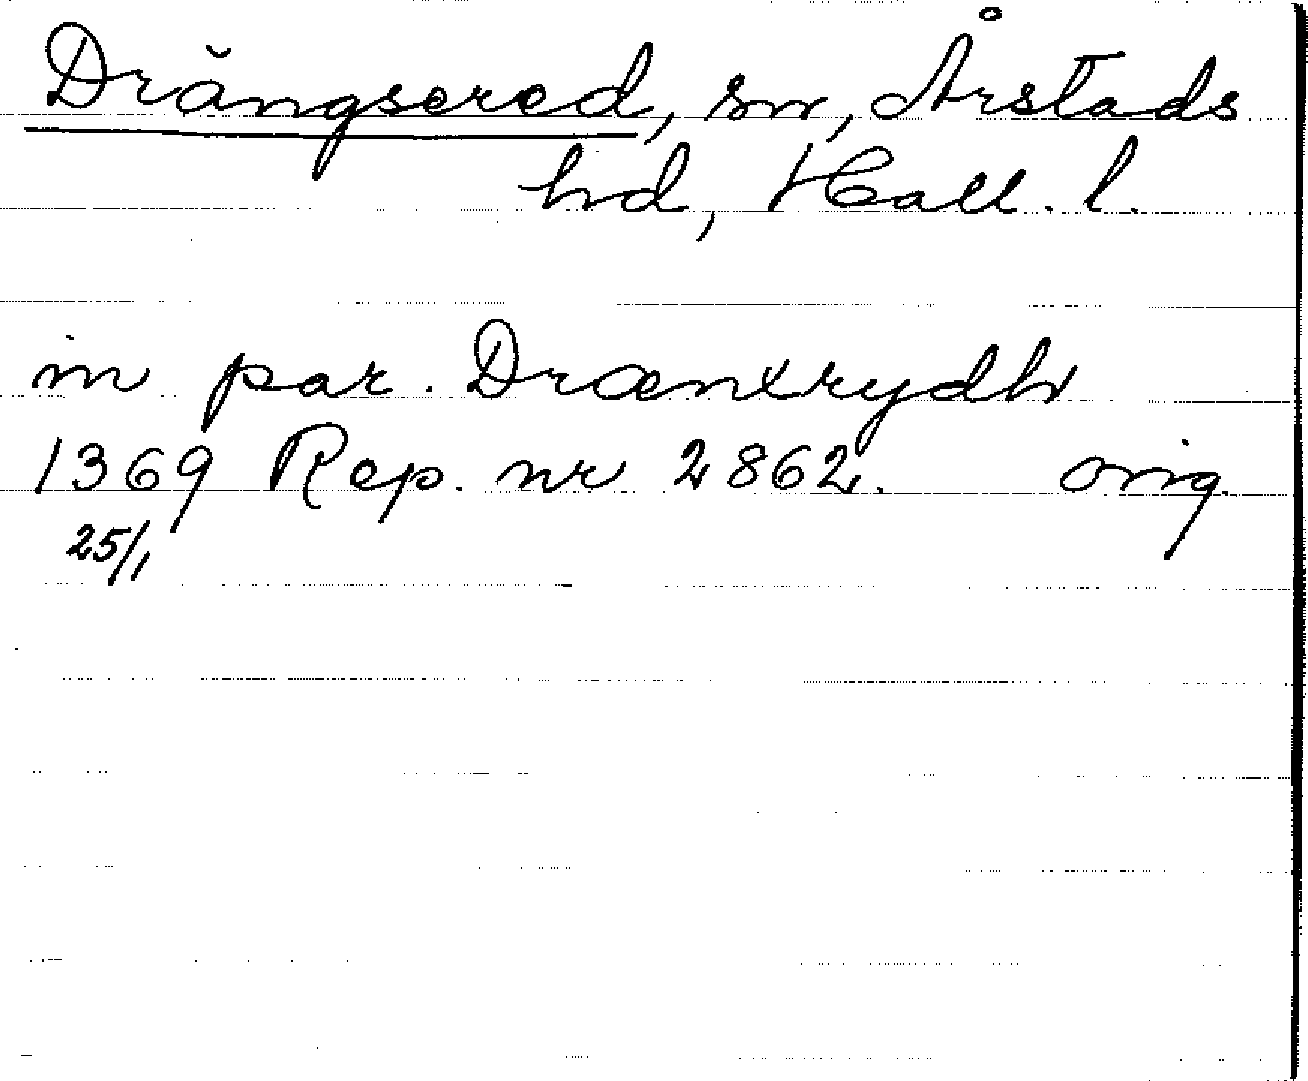 Drängsered, sn, Årstads
hd, Hall. l.
in par. Drænxrydh
1369 Rep. nr 2862. orig.
25/1